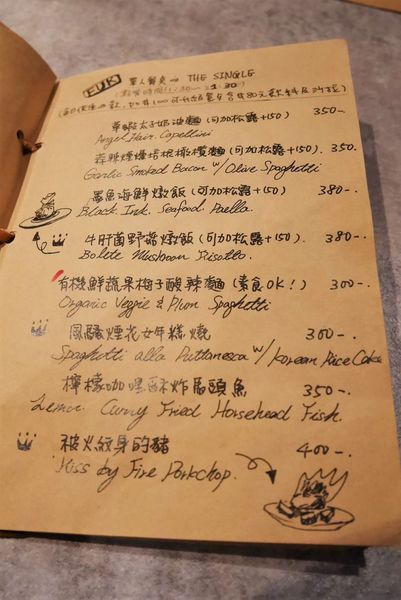 FUK 單人餐桌 THE SINGLE
草蝦太子奶油麵(可加松露+150) 350-.
Angel Hair Capellini
蒜辣煙燻培根橄欖麵(可加松露+150). 350.
Garlic Smoked Bacon w/ Olive Spaghetti
墨魚海鮮燉飯(可加松露+150) 380-.
Black Ink. Seafood Paella.
牛肝菌野菇燉飯(可加松露+150). 380-.
Bolete Mushroom Risotto.
有機鮮蔬果梅子酸辣麵(素食OK!) 300-.
Organic Veggie & Plum Spaghetti
風騷煙花女年糕燒 300-.
Spaghetti alla Puttanesca w/ Korean Rice Cake
檸檬咖哩酥炸馬頭魚 350-.
Lemon Curry Fried Horsehead Fish.
被火紋身的豬 400-.
Kiss by Fire Porkchop.